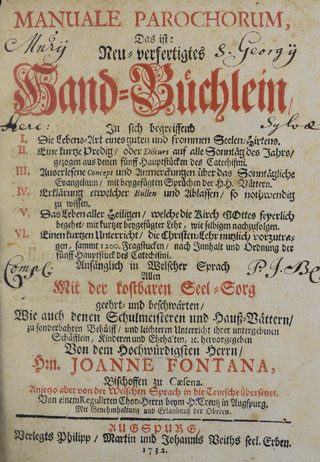 MANUALE PAROCHORUM,
Das ist:
Neu-verfertigtes
S. Georgÿ
Hand-Büchlein/
In sich begreiffend
I. Die Lebens-Art eines guten und frommen Seelen-Hirtens.
II. Eine kurtze Predig/ oder Discurs auf alle Sonntäg des Jahrs/
gezogen aus denen fünff Hauptstücken des Catechismi.
III. Auserlesene Concept und Anmerckungen über das Sonntägliche
Evangelium/ mit beygefügten Sprüchen der HH. Vättern.
IV. Erklärung etwelcher Bullen und Ablassen/ so nothwendig
zu wissen.
V. Das Leben aller Heiligen/ welche die Kirch Gottes feyerlich
begehet/ mit kurtzer beygefügter Lehr/ wie selbigen nachzufolgen.
VI. Einen kurtzen Unterricht/ die Christen-Lehr nutzlich vorzutra-
gen/ sammt 1200. Fragstucken/ nach Innhalt und Ordnung der
fünff Hauptstuck des Catechismi.
Anfänglich in Welscher Sprach
Allen
Mit der kostbaren Seel-Sorg
geehrt- und beschwärten/
Wie auch denen Schulmeisteren und Hauß-Vättern/
zu sonderbahren Behülff/ und leichteren Unterricht ihrer untergebenen
Schäfflein/ Kinderen und Ehehalten/ ec. hervorgegeben
Von dem Hochwürdigsten Herrn/
Hrn. JOANNE FONTANA,
Bischoffen zu Cæsena.
Anjetzo aber von der Welschen Sprach in die Teutsche übersetzet.
Von einem Regulirten Chor-Herrn beym H. Creutz in Augspurg.
Mit Genehmhaltung und Erlaubnuß der Oberen.
AUGSPURG/
Verlegts Philipp/ Martin und Johannis Veiths seel. Erben.
1732.